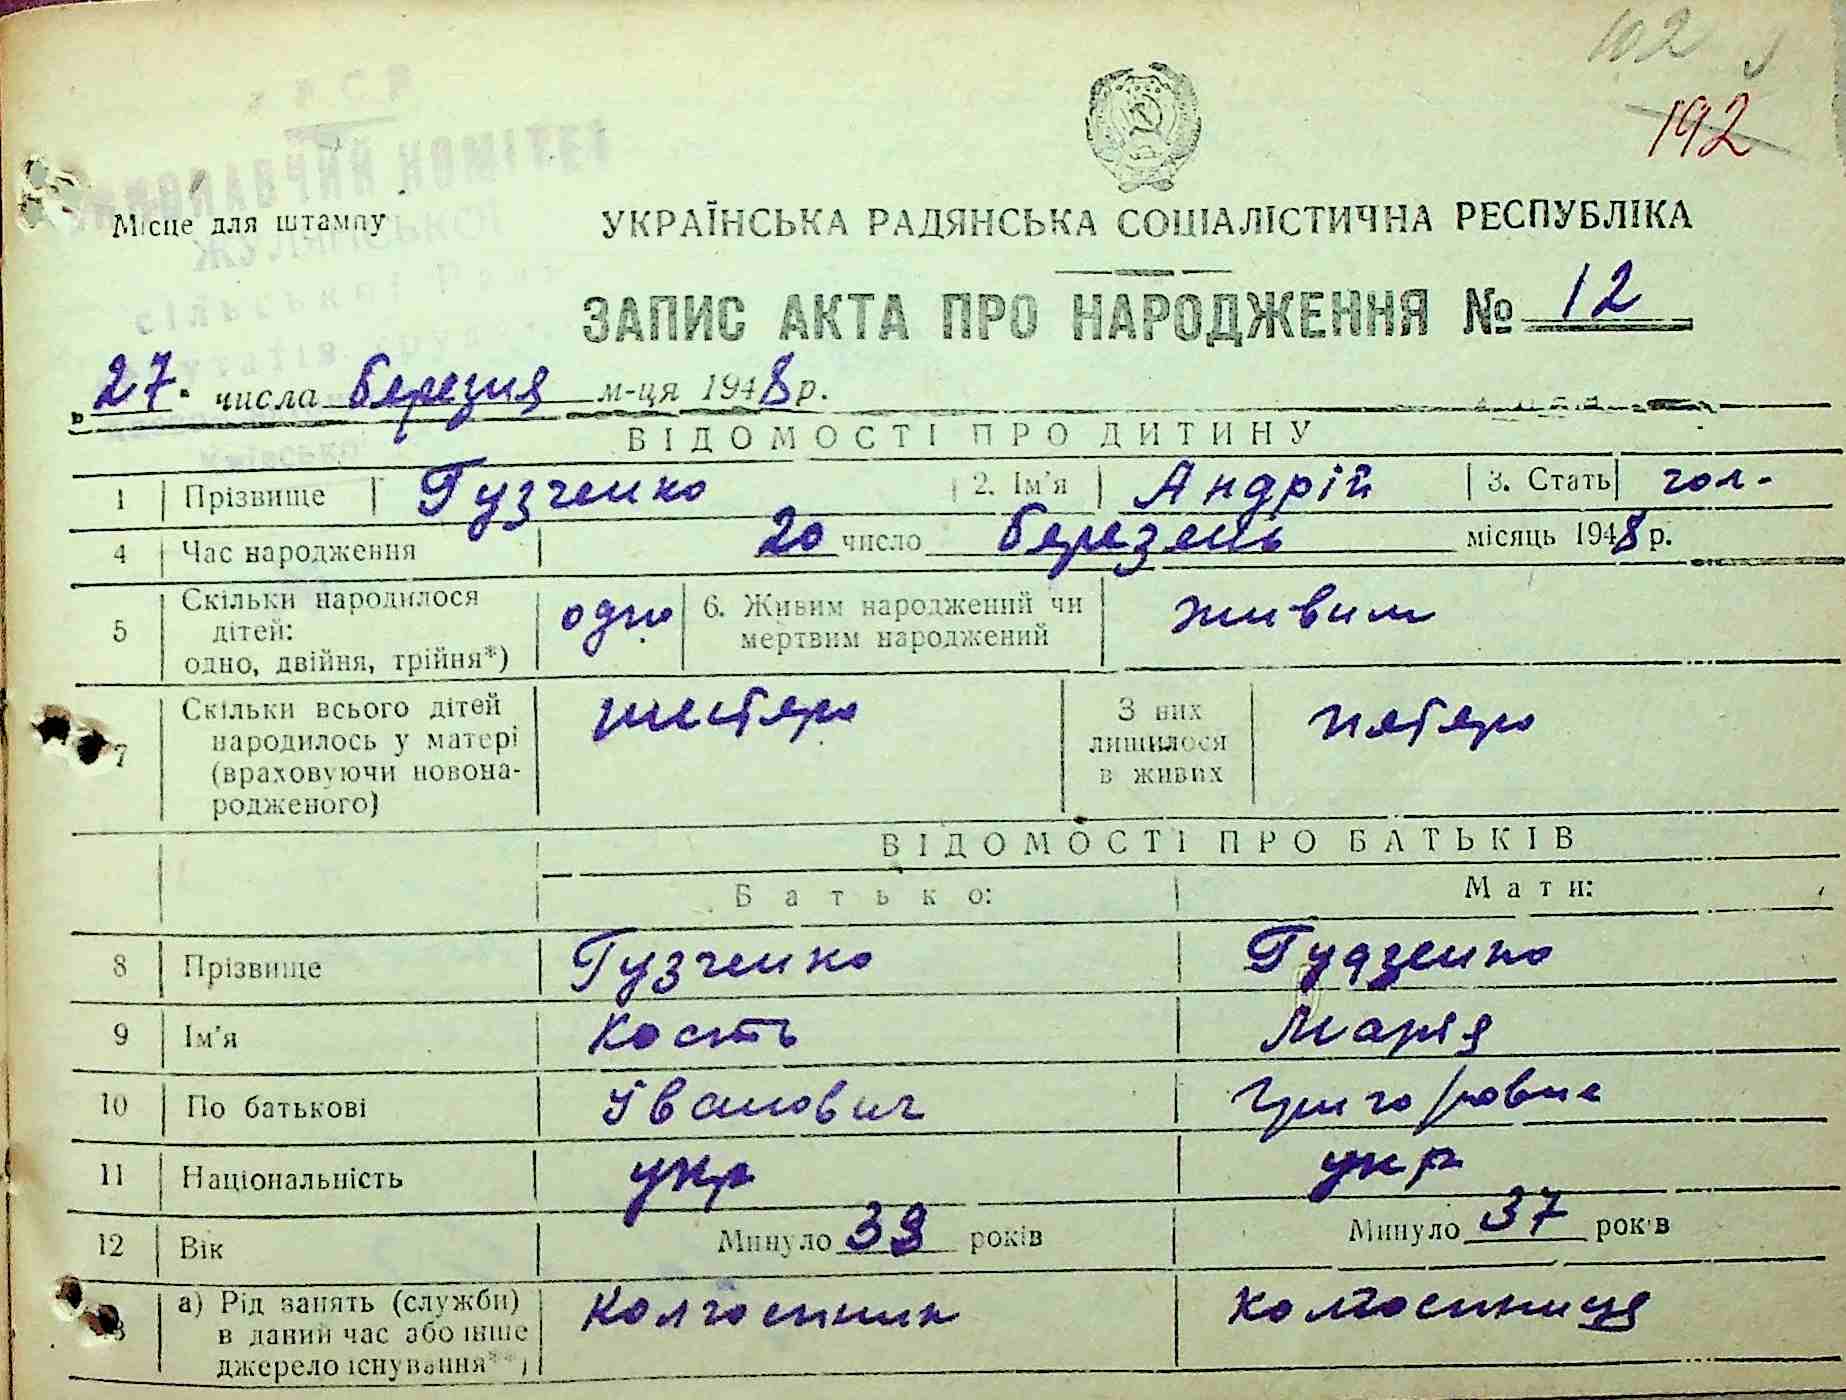 102
192
ВИКОНАВЧИЙ КОМІТЕТ
Місце для штампу
ЖУЛЯНСЬКОЇ
УКРАЇНСЬКА РАДЯНСЬКА СОЦІАЛІСТИЧНА РЕСПУБЛІКА
сільської Ради
ЗАПИС АКТА ПРО НАРОДЖЕННЯ № 12
„27" числа березня м-ця 1948 р.
ВІДОМОСТІ ПРО ДИТИНУ
1 Прізвище Гузченко 2. Ім'я Андрій 3. Стать чол.
4 Час народження 20 число березень місяць 1948 р.
5 Скільки народилося дітей: одно, двійня, трійня*) одно 6. Живим народжений чи мертвим народжений живим
7 Скільки всього дітей народилось у матері (враховуючи новонародженого) шестеро З них лишилося в живих пятеро
ВІДОМОСТІ ПРО БАТЬКІВ
Батько: Мати:
8 Прізвище Гузченко Гудзенко
9 Ім'я Кость Марія
10 По батькові Іванович Григоровна
11 Національність укр укр
12 Вік Минуло 39 років Минуло 37 років
13 а) Рід занять (служби) в даний час або інше джерело існування**) Колгоспник колгоспниця